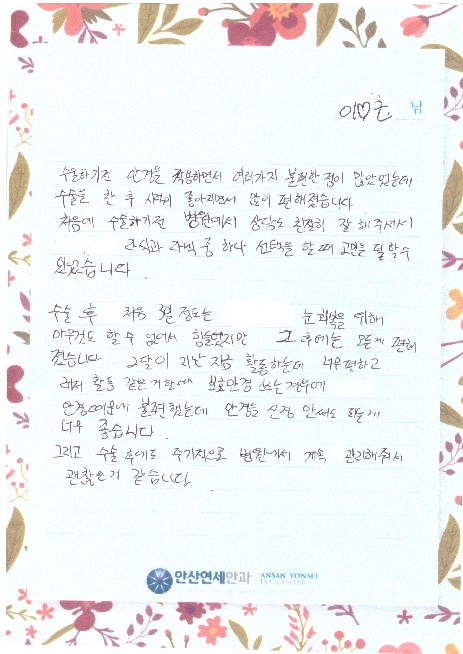 이♡존 님
수술하기전 안경을 착용하면서 여러가지 불편한 점이 많았었는데
수술을 한 후 시력이 좋아지면서 많이 편해졌습니다
처음에 수술하기전 병원에서 상담도 친절히 잘 해주셔서
라식과 라섹 중 하나 선택을 할 때 고민을 덜 할수
있었습니다
수술 후 처음 3일 정도는 눈 회복을 위해
아무것도 할 수 없어서 힘들었지만 그 후에는 모든게 편해
졌습니다 2달이 지난 지금 활동하는데 너무 편하고
레저 활동 같은거 할때 보호안경 쓰는 경우에
안경때문에 불편했는데 안경을 신경 안써도 되는게
너무 좋습니다
그리고 수술 후에도 주기적으로 병원에서 계속 관리해줘서
괜찮은거 같습니다
안산연세안과 ANSAN YONSEI
EYE CENTER